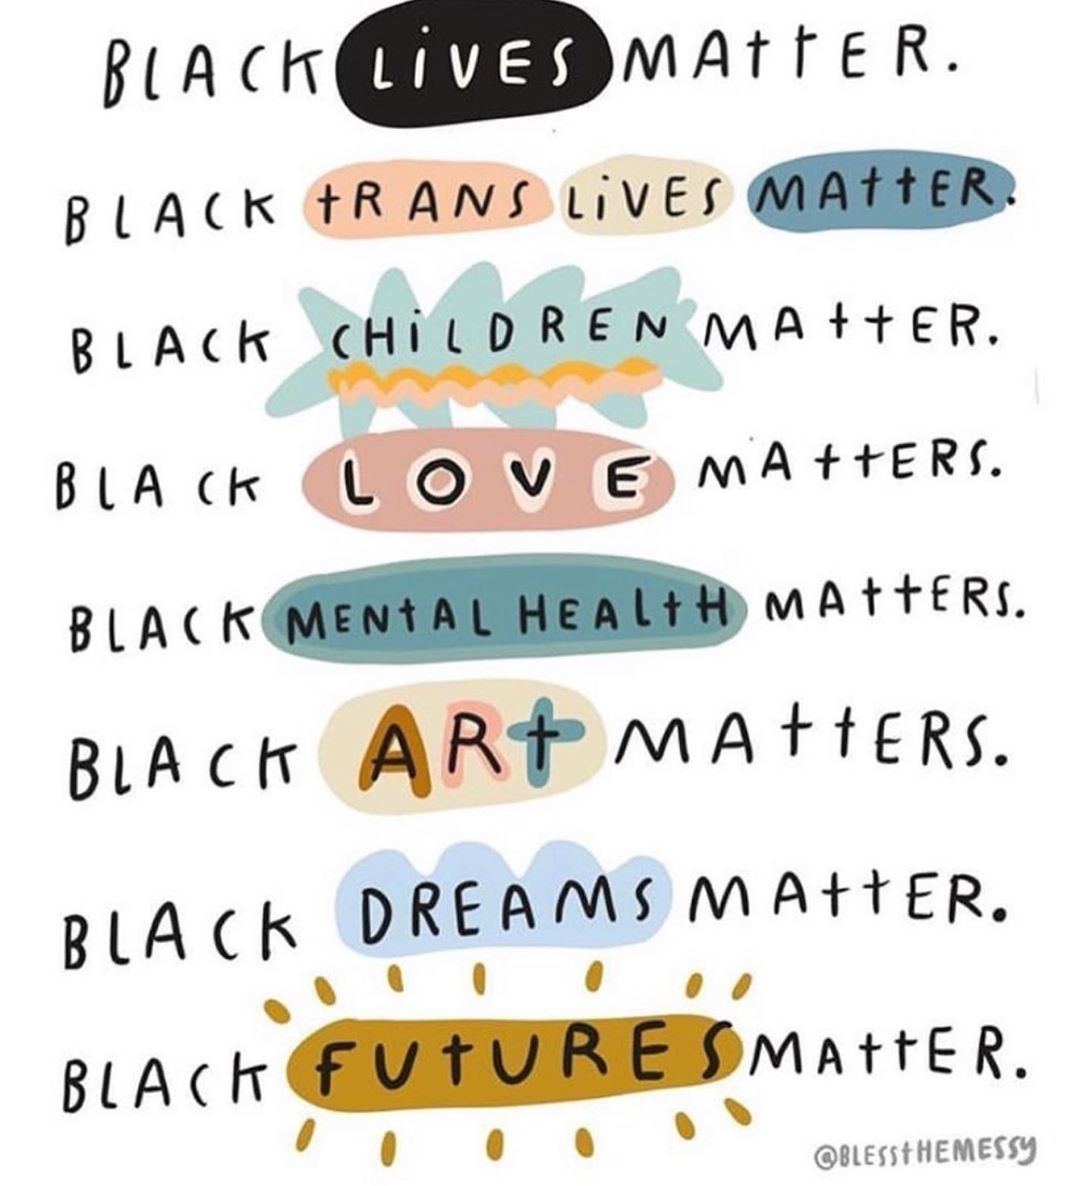 BLACK LiVES MAttER.
BLACK tRANS LiVES MAttER.
BLACK CHiLDREN MAttER.
BLACK LOVE MAttERS.
BLACK MENtAL HEALtH MAttERS.
BLACK ARt MAttERS.
BLACK DREAMS MAttER.
BLACK FUtURES MAttER.
@BLESStHEMESSy